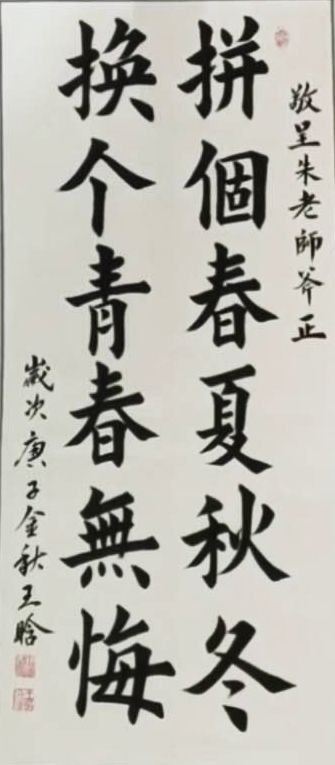 敬呈朱老師斧正
拼個春夏秋冬
换个青春無悔
歲次庚子金秋王晗